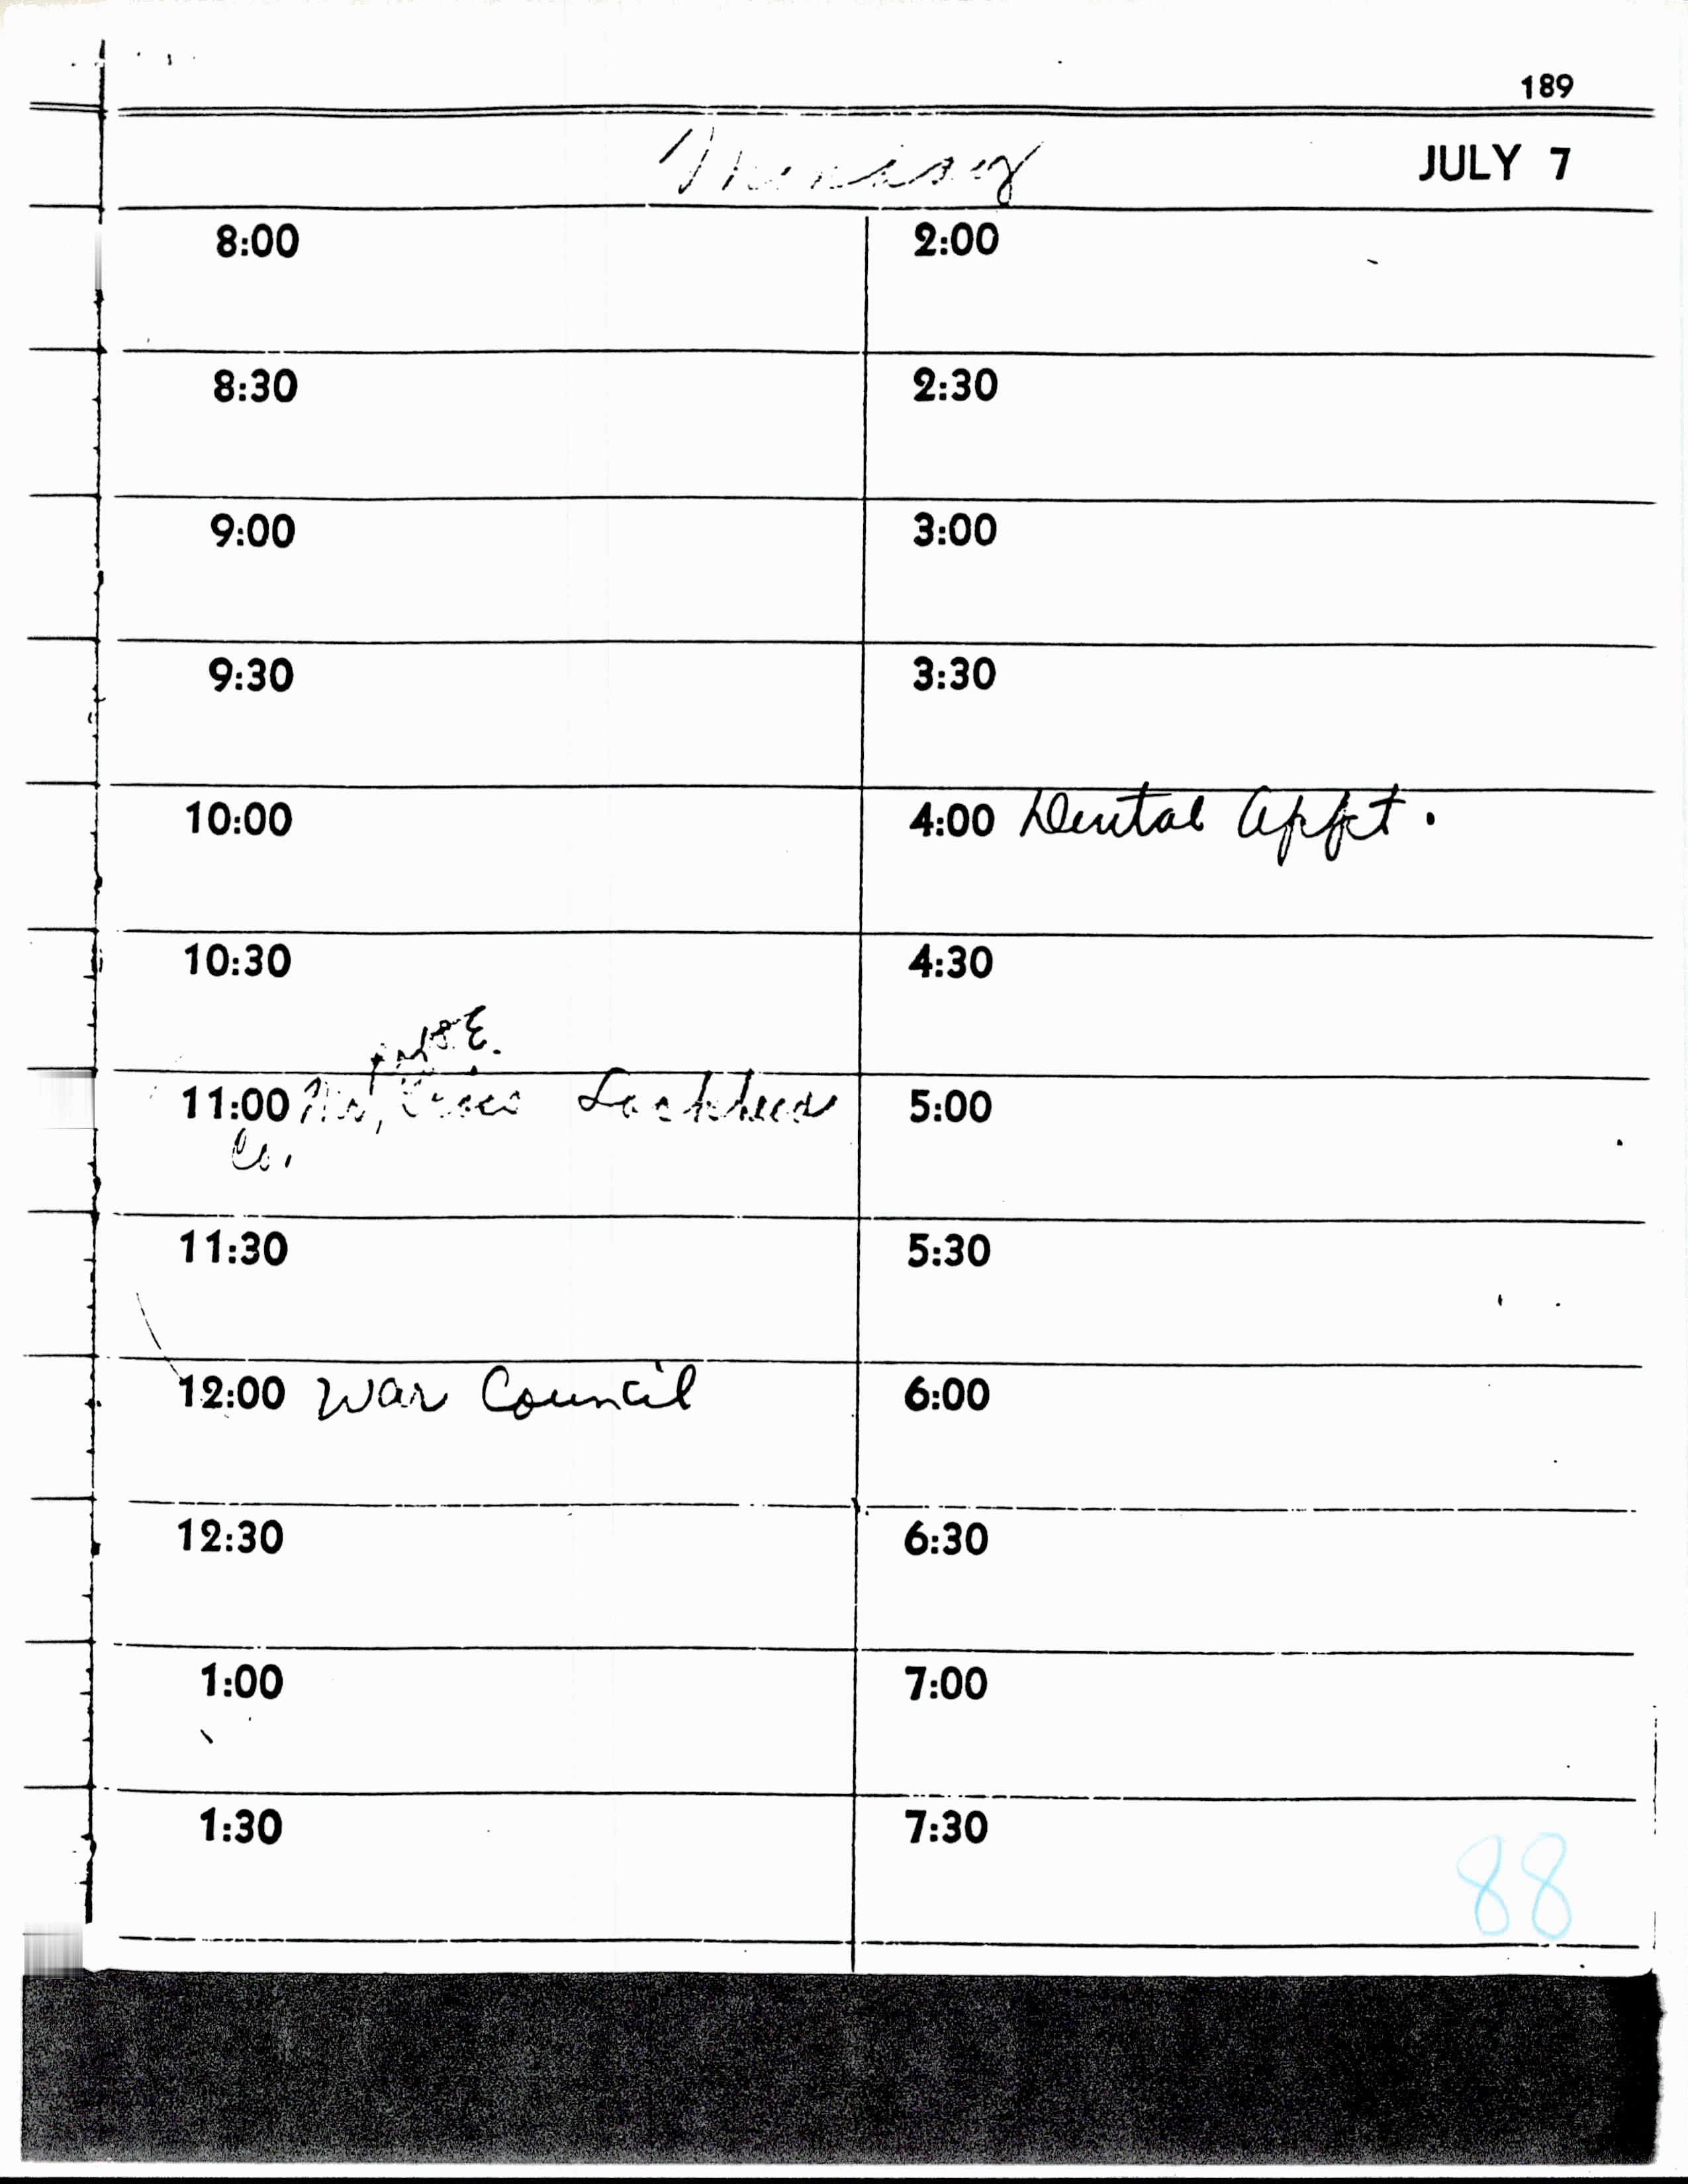 189
Monday
JULY 7
8:00
8:30
9:00
9:30
10:00
10:30
11:00 Mr. Lockheed
Co.
11:30
12:00 War Council
12:30
1:00
1:30
2:00
2:30
3:00
3:30
4:00 Dental Appt.
4:30
5:00
5:30
6:00
6:30
7:00
7:30
88